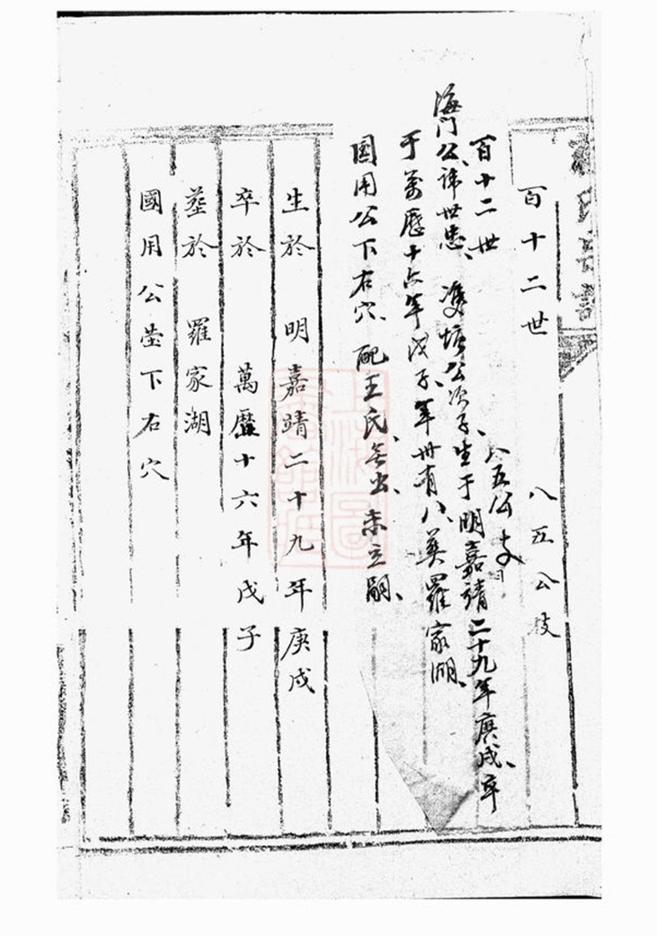 百十二世 八五公枝
百十二世 八五公支
海门公、讳世忠、双塘公次子、生于明嘉靖二十九年庚戌、卒
于萬歷十六年戊子、年卅有八、葬羅家湖、
国用公下右穴、配王氏、无出、未立嗣、
生於 明嘉靖二十九年庚戌
卒於 萬歷十六年戊子
塟於 羅家湖
國用公塋下右穴